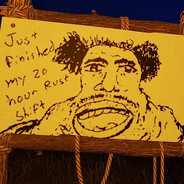 Just
finished
my 20
hour Rust
Shift